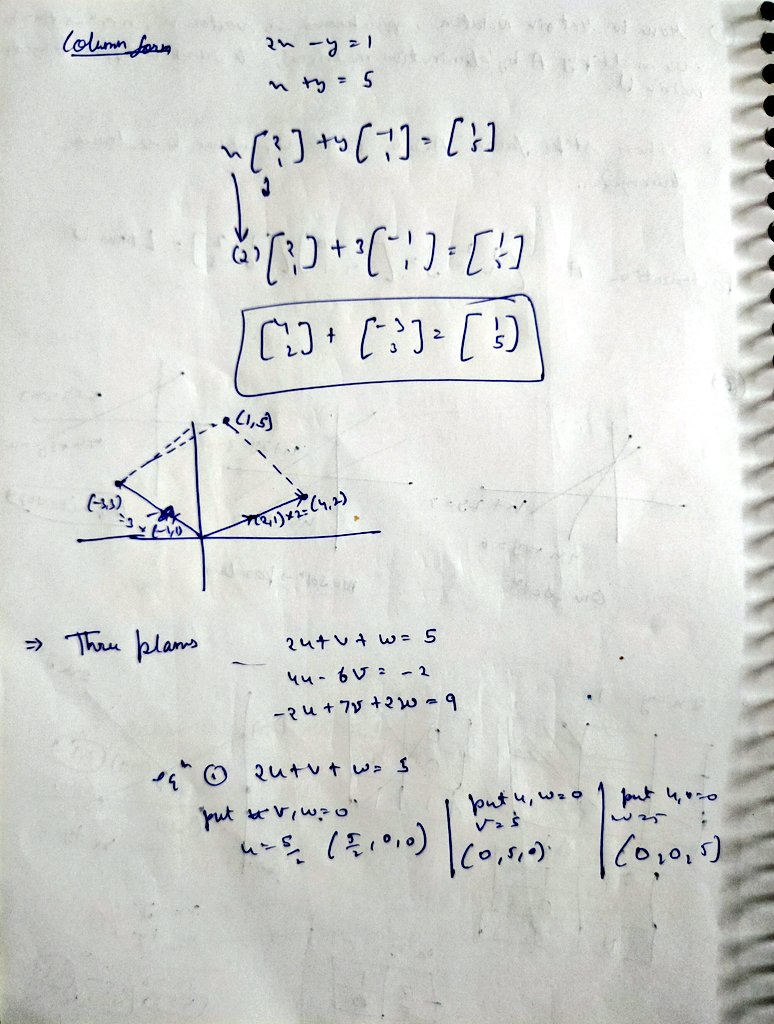 Column form
2x - y = 1
x + y = 5
x [2 1] + y [-1 1] = [1 5]
(2) [2 1] + 3 [-1 1] = [1 5]
[4 2] + [-3 3] = [1 5]
(1,5)
(-3,3)
=3 × (-1,1)
(2,1)×2=(4,2)
⇒ Three planes
2u + v + w = 5
4u - 6v = -2
-2u + 7v + 2w = 9
eqⁿ ① 2u + v + w = 5
put v, w = 0
u = 5/2 (5/2, 0, 0)
put u, w = 0
v = 5
(0, 5, 0)
put u, v = 0
w = 5
(0, 0, 5)